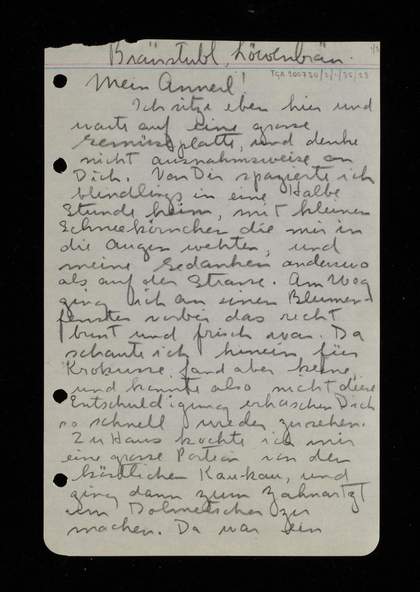 Bräustubl, Löwenbräu.
Mein Annerl!
Ich sitze eben hier und
warte auf eine grosse
Gemüseplatte, und denke
nicht ausnahmsweise an
Dich. Von Dir spazierte ich
blindlings in eine Halbe
Stunde heim, mit kleinen
Schneekörnchen die mir in
die Augen wehten, und
meine Gedanken anderswo
als auf der Strasse. Am Weg
ging ich an einen Blumen-
fenster vorbei das recht
bunt und frisch war. Da
schaute ich herein für
Krokusse, fand aber keine,
und konnte also nicht diese
Entschuldigung erhaschen Dich
so schnell wieder zu sehen.
Zu Haus kochte ich mir
eine grosse Portion von den
köstlichen Kaukau, und
ging dann zum Zahnartzt
um Dolmetscher zu
machen. Da war ein